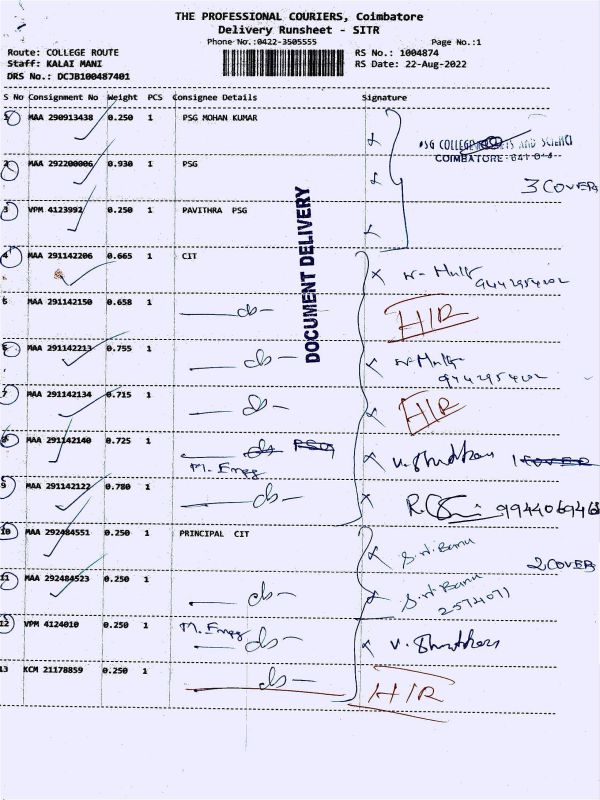 THE PROFESSIONAL COURIERS, Coimbatore
Delivery Runsheet - SITR
Phone No.:0422-3505555 Page No.:1
Route: COLLEGE ROUTE RS No.: 1004874
Staff: KALAI MANI RS Date: 22-Aug-2022
DRS No.: DCJB100487401
S No Consignment No Weight PCS Consignee Details Signature
1 MAA 290913438 0.250 1 PSG MOHAN KUMAR
PSG COLLEGE OF ARTS AND SCIENCE
COIMBATORE-641 014
2 MAA 292200006 0.930 1 PSG
3 COVER
3 VPM 4123992 0.250 1 PAVITHRA PSG
DOCUMENT DELIVERY
4 MAA 291142206 0.665 1 CIT
5 MAA 291142150 0.658 1 do - HIR
6 MAA 291142213 0.755 1 do -
7 MAA 291142134 0.715 1 do - HIR
8 MAA 291142140 0.725 1 do PSG 1 COVER
M. Engg
9 MAA 291142122 0.780 1 do - 9944069468
10 MAA 292484551 0.250 1 PRINCIPAL CIT
2 COVER
11 MAA 292484523 0.250 1 do - 2574071
12 VPM 4124010 0.250 1 M. Engg do -
13 KCM 21178859 0.250 1 do - HIR